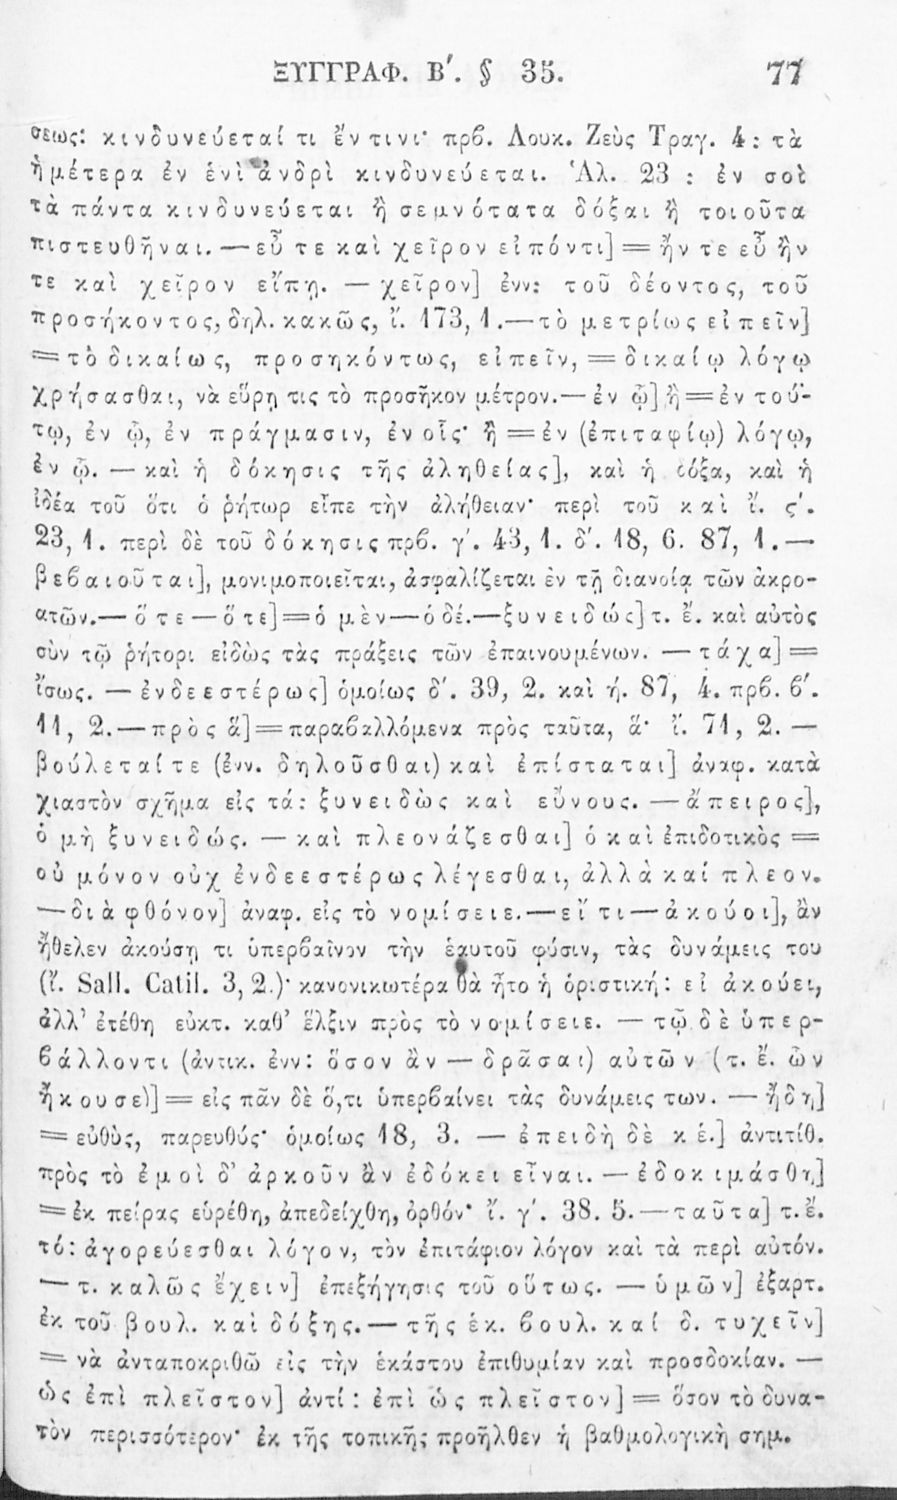 ΞΥΓΓΡΑΦ. Β΄. § 35. 77
σεως: κινδυνεύεταί τι ἔν τινι· πρβ. Λουκ. Ζεὺς Τραγ. 4: τὰ
ἡμέτερα ἐν ἑνὶ ἀνδρὶ κινδυνεύεται. Ἁλ. 23 : ἐν σοὶ
τὰ πάντα κινδυνεύεται ἢ σεμνότατα δόξαι ἢ τοιοῦτα
πιστευθῆναι. — εὖ τε καὶ χεῖρον εἰπόντι] = ἤν τε εὖ ἤν
τε καὶ χεῖρον εἴπῃ. — χεῖρον] ἐνν: τοῦ δέοντος, τοῦ
προσήκοντος, δηλ. κακῶς, ἴ. 173, 1.—τὸ μετρίως εἰπεῖν]
= τὸ δικαίως, προσηκόντως, εἰπεῖν, = δικαίῳ λόγῳ
χρήσασθαι, νὰ εὕρῃ τις τὸ προσῆκον μέτρον.— ἐν ᾧ] ἢ = ἐν τού-
τῳ, ἐν ᾧ, ἐν πράγμασιν, ἐν οἷς· ἢ = ἐν (ἐπιταφίῳ) λόγῳ,
ἐν ᾧ. — καὶ ἡ δόκησις τῆς ἀληθείας], καὶ ἡ δόξα, καὶ ἡ
ἰδέα τοῦ ὅτι ὁ ῥήτωρ εἶπε τὴν ἀλήθειαν· περὶ τοῦ καὶ ἴ. ς΄.
23, 1. περὶ δὲ τοῦ δόκησις πρβ. γ΄. 43, 1. δ΄. 18, 6. 87, 1. —
βεβαιοῦται], μονιμοποιεῖται, ἀσφαλίζεται ἐν τῇ διανοίᾳ τῶν ἀκρο-
ατῶν.— ὅτε — ὅτε] = ὁ μὲν — ὁ δέ.— ξυνειδώς] τ. ἔ. καὶ αὐτὸς
σὺν τῷ ῥήτορι εἰδὼς τὰς πράξεις τῶν ἐπαινουμένων. — τάχα] =
ἴσως. — ἐνδεεστέρως] ὁμοίως δ΄. 39, 2. καὶ ή. 87, 4. πρβ. β΄.
11, 2. — πρὸς ἃ] = παραβαλλόμενα πρὸς ταῦτα, ἅ· ἴ. 71, 2. —
βούλεταί τε (ἐνν. δηλοῦσθαι) καὶ ἐπίσταται] ἀναφ. κατὰ
χιαστὸν σχῆμα εἰς τά: ξυνειδὼς καὶ εὔνους. — ἄπειρος],
ὁ μὴ ξυνειδώς. — καὶ πλεονάζεσθαι] ὁ καὶ ἐπιδοτικὸς =
οὐ μόνον οὐχ ἐνδεεστέρως λέγεσθαι, ἀλλὰ καί πλεον.
— διὰ φθόνον] ἀναφ. εἰς τὸ νομίσειε. — εἴ τι — ἀκούοι], ἂν
ἤθελεν ἀκούσῃ τι ὑπερβαῖνον τὴν ἑαυτοῦ φύσιν, τὰς δυνάμεις του
(ἴ. Sall. Catil. 3, 2.)· κανονικωτέρα θὰ ἦτο ἡ ὁριστική: εἰ ἀκούει,
ἀλλ' ἐτέθη εὐκτ. καθ' ἕλξιν πρὸς τὸ νομίσειε. — τῷ δὲ ὑπερ-
βάλλοντι (ἀντικ. ἐνν: ὅσον ἂν — δρᾶσαι) αὐτῶν (τ. ἔ. ὧν
ἤκουσε)] = εἰς πᾶν δὲ ὅ,τι ὑπερβαίνει τὰς δυνάμεις των. — ἤδη]
= εὐθὺς, παρευθύς· ὁμοίως 18, 3. — ἐπειδὴ δὲ κ έ.] ἀντιτίθ.
πρὸς τὸ ἐμοὶ δ' ἀρκοῦν ἂν ἐδόκει εἶναι. — ἐδοκιμάσθη]
= ἐκ πείρας εὑρέθη, ἀπεδείχθη, ὀρθόν· ἴ. γ΄. 38. 5. — ταῦτα] τ. ἔ.
τό: ἀγορεύεσθαι λόγον, τὸν ἐπιτάφιον λόγον καὶ τὰ περὶ αὐτόν.
— τ. καλῶς ἔχειν] ἐπεξήγησις τοῦ οὕτως. — ὑμῶν] ἐξαρτ.
ἐκ τοῦ βουλ. καὶ δόξης. — τῆς ἑκ. βουλ. καί δ. τυχεῖν]
= νὰ ἀνταποκριθῶ εἰς τὴν ἑκάστου ἐπιθυμίαν καὶ προσδοκίαν. —
ὡς ἐπὶ πλεῖστον] ἀντί: ἐπὶ ὡς πλεῖστον] = ὅσον τὸ δυνα-
τὸν περισσότερον· ἐκ τῆς τοπικῆς προῆλθεν ἡ βαθμολογικὴ σημ.